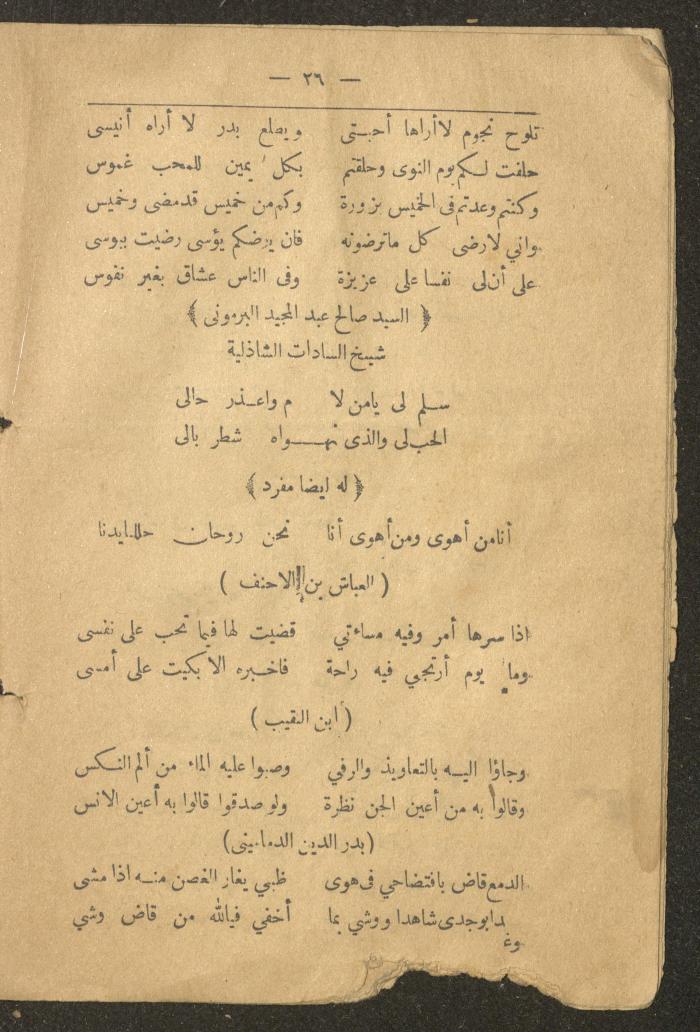 — ٢٦ —
تلوح نجوم لاأراها أحبتى ويطلع بدر لا أراه أنيسى
حلفت لكم يوم النوى وحلفتم بكل يمين للمحب غموس
وكنتم وعدتم فى الخميس بزورة وكم من خميس قدمضى وخميس
وانى لارضى كل ماترضونه فان يرضكم بؤسى رضيت ببوسى
على أن لى نفسا على عزيزة وفى الناس عشاق بغير نفوس
﴿ السيد صالح عبد المجيد البرمونى ﴾
شيخ السادات الشاذلية
سلم لى يامن لا م واعذر حالى
الحب لى والذى نهواه شطر بالى
﴿ له ايضا مفرد ﴾
أنامن أهوى ومن أهوى أنا نحن روحان حللنا بدنا
( العباس بن الاحنف )
اذا سرها أمر وفيه مساءتي قضيت لها فيما تحب على نفسى
وما يوم أرتجي فيه راحة فاخبره الا بكيت على أمسى
( ابن النقيب )
وجاؤا اليه بالتعاويذ والرقي وصبوا عليه الماء من ألم النكس
وقالوا به من أعين الجن نظرة ولو صدقوا قالوا به أعين الانس
(بدر الدين الدمامينى)
الدمع قاض بافتضاحي فى هوى ظبي يغار الغصن منه اذا مشى
وغدا بوجدى شاهدا ووشي بما أخفي فيالله من قاض وشي